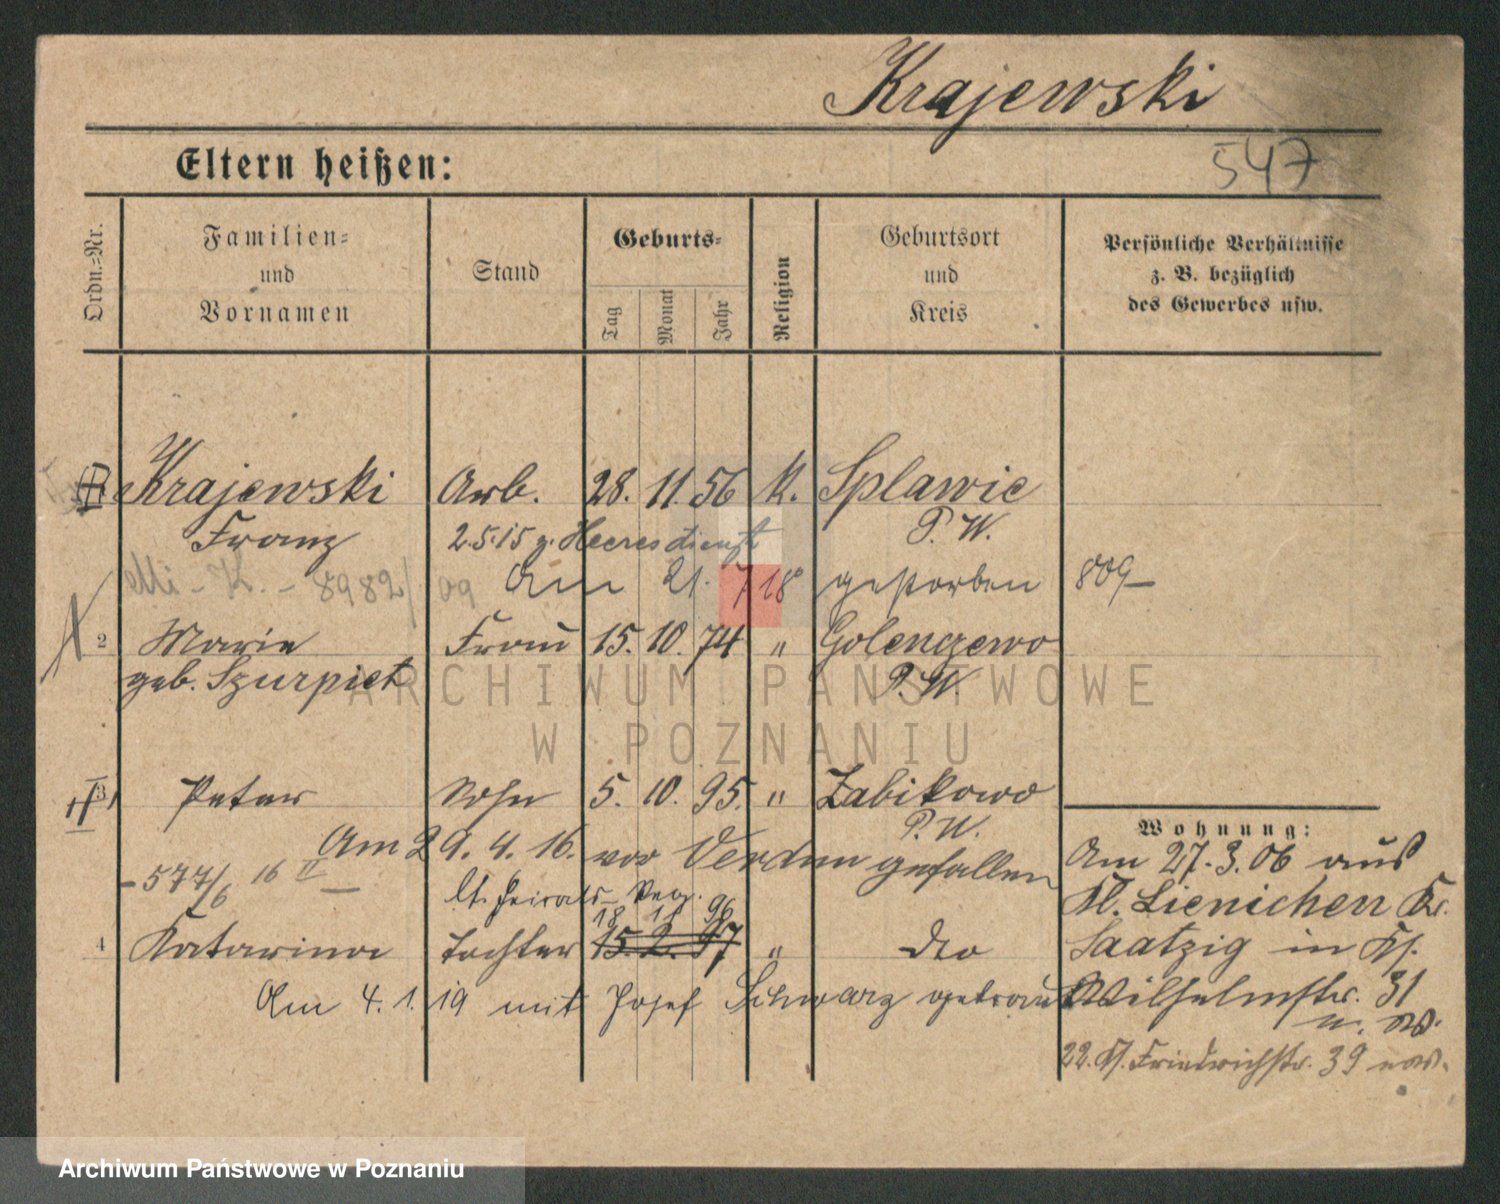 Krajewski
Eltern heißen:
547
Ordn.-Nr.
Familien-
und
Vornamen
Stand
Geburts-
Tag
Monat
Jahr
Religion
Geburtsort
und
Kreis
Persönliche Verhältnisse
z. B. bezüglich
des Gewerbes usw.
Krajewski Arb. 28. 11. 56 k. Splawie
Franz 2.5.15 z. Heeresdienst P. W.
8982/09 Am 21. 7 18 gestorben 809
2 Marie Frau 15. 10. 74 " Golenczewo
geb. Szurpiet P. W.
ARCHIWUM PAŃSTWOWE
W POZNANIU
3 Peter Sohn 5. 10. 95. " Zabikowo
P. W.
Am 29. 4. 16. vor Verdun gefallen
577/6 16 II
lt. Heirats-Reg.
18 11 96
4 Katarina Tochter 15. 2. 97 " dto
Am 4. 1. 19 mit Josef Schwarz getraut
Wohnung:
Am 27.3.06 aus
Kl. Lienichen Kr.
Saatzig in
Wilhelmstr. 31
22. Friedrichstr. 39
Archiwum Państwowe w Poznaniu